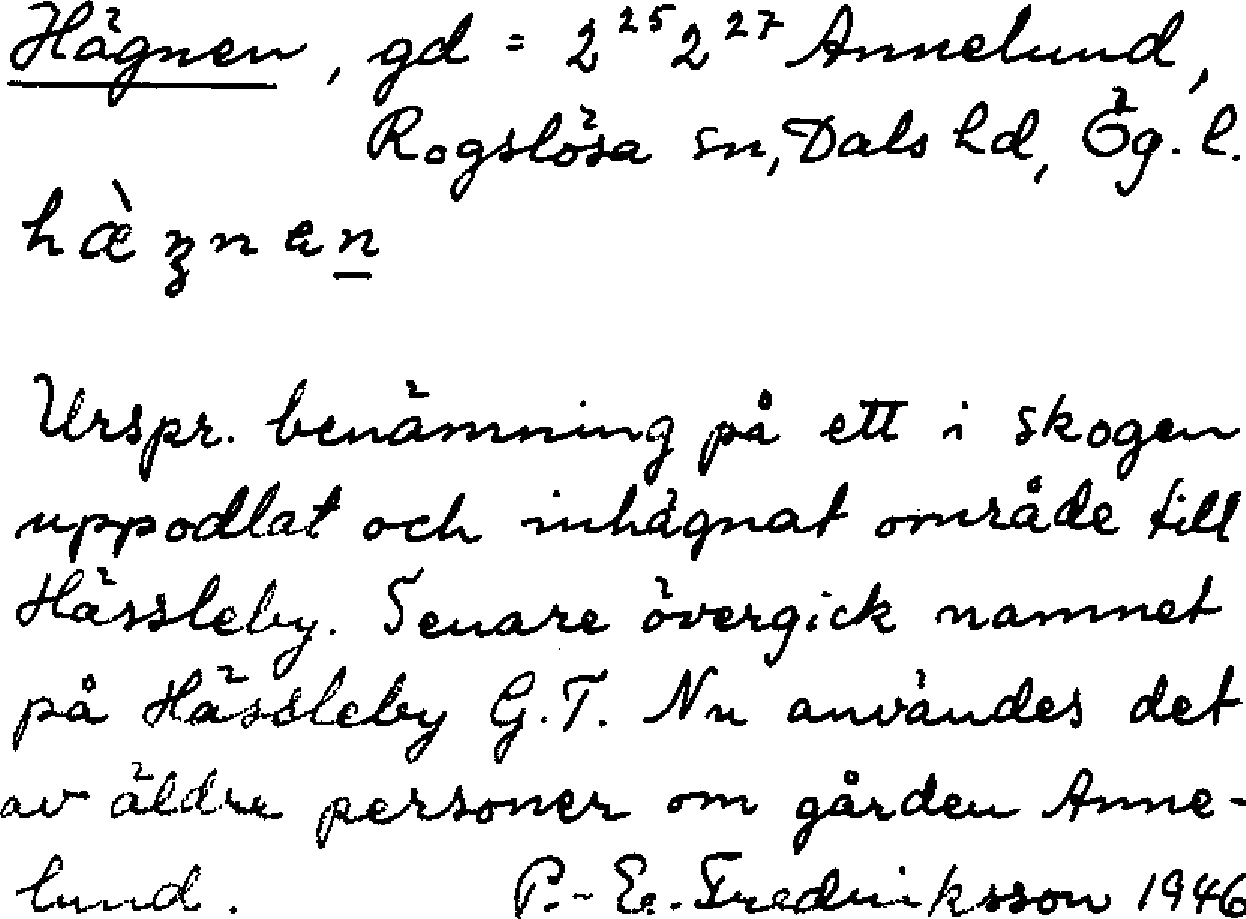 Hägnen, gd = 2²⁵2²⁷ Annelund,
Rogslösa sn, Dals hd, Ög. l.
hæ̀ʒnen
Urspr. benämning på ett i skogen
uppodlat och inhägnat område till
Hässleby. Senare övergick namnet
på Hässleby G.T. Nu användes det
av äldre personer om gården Anne-
lund. P.-E. Fredriksson 1946